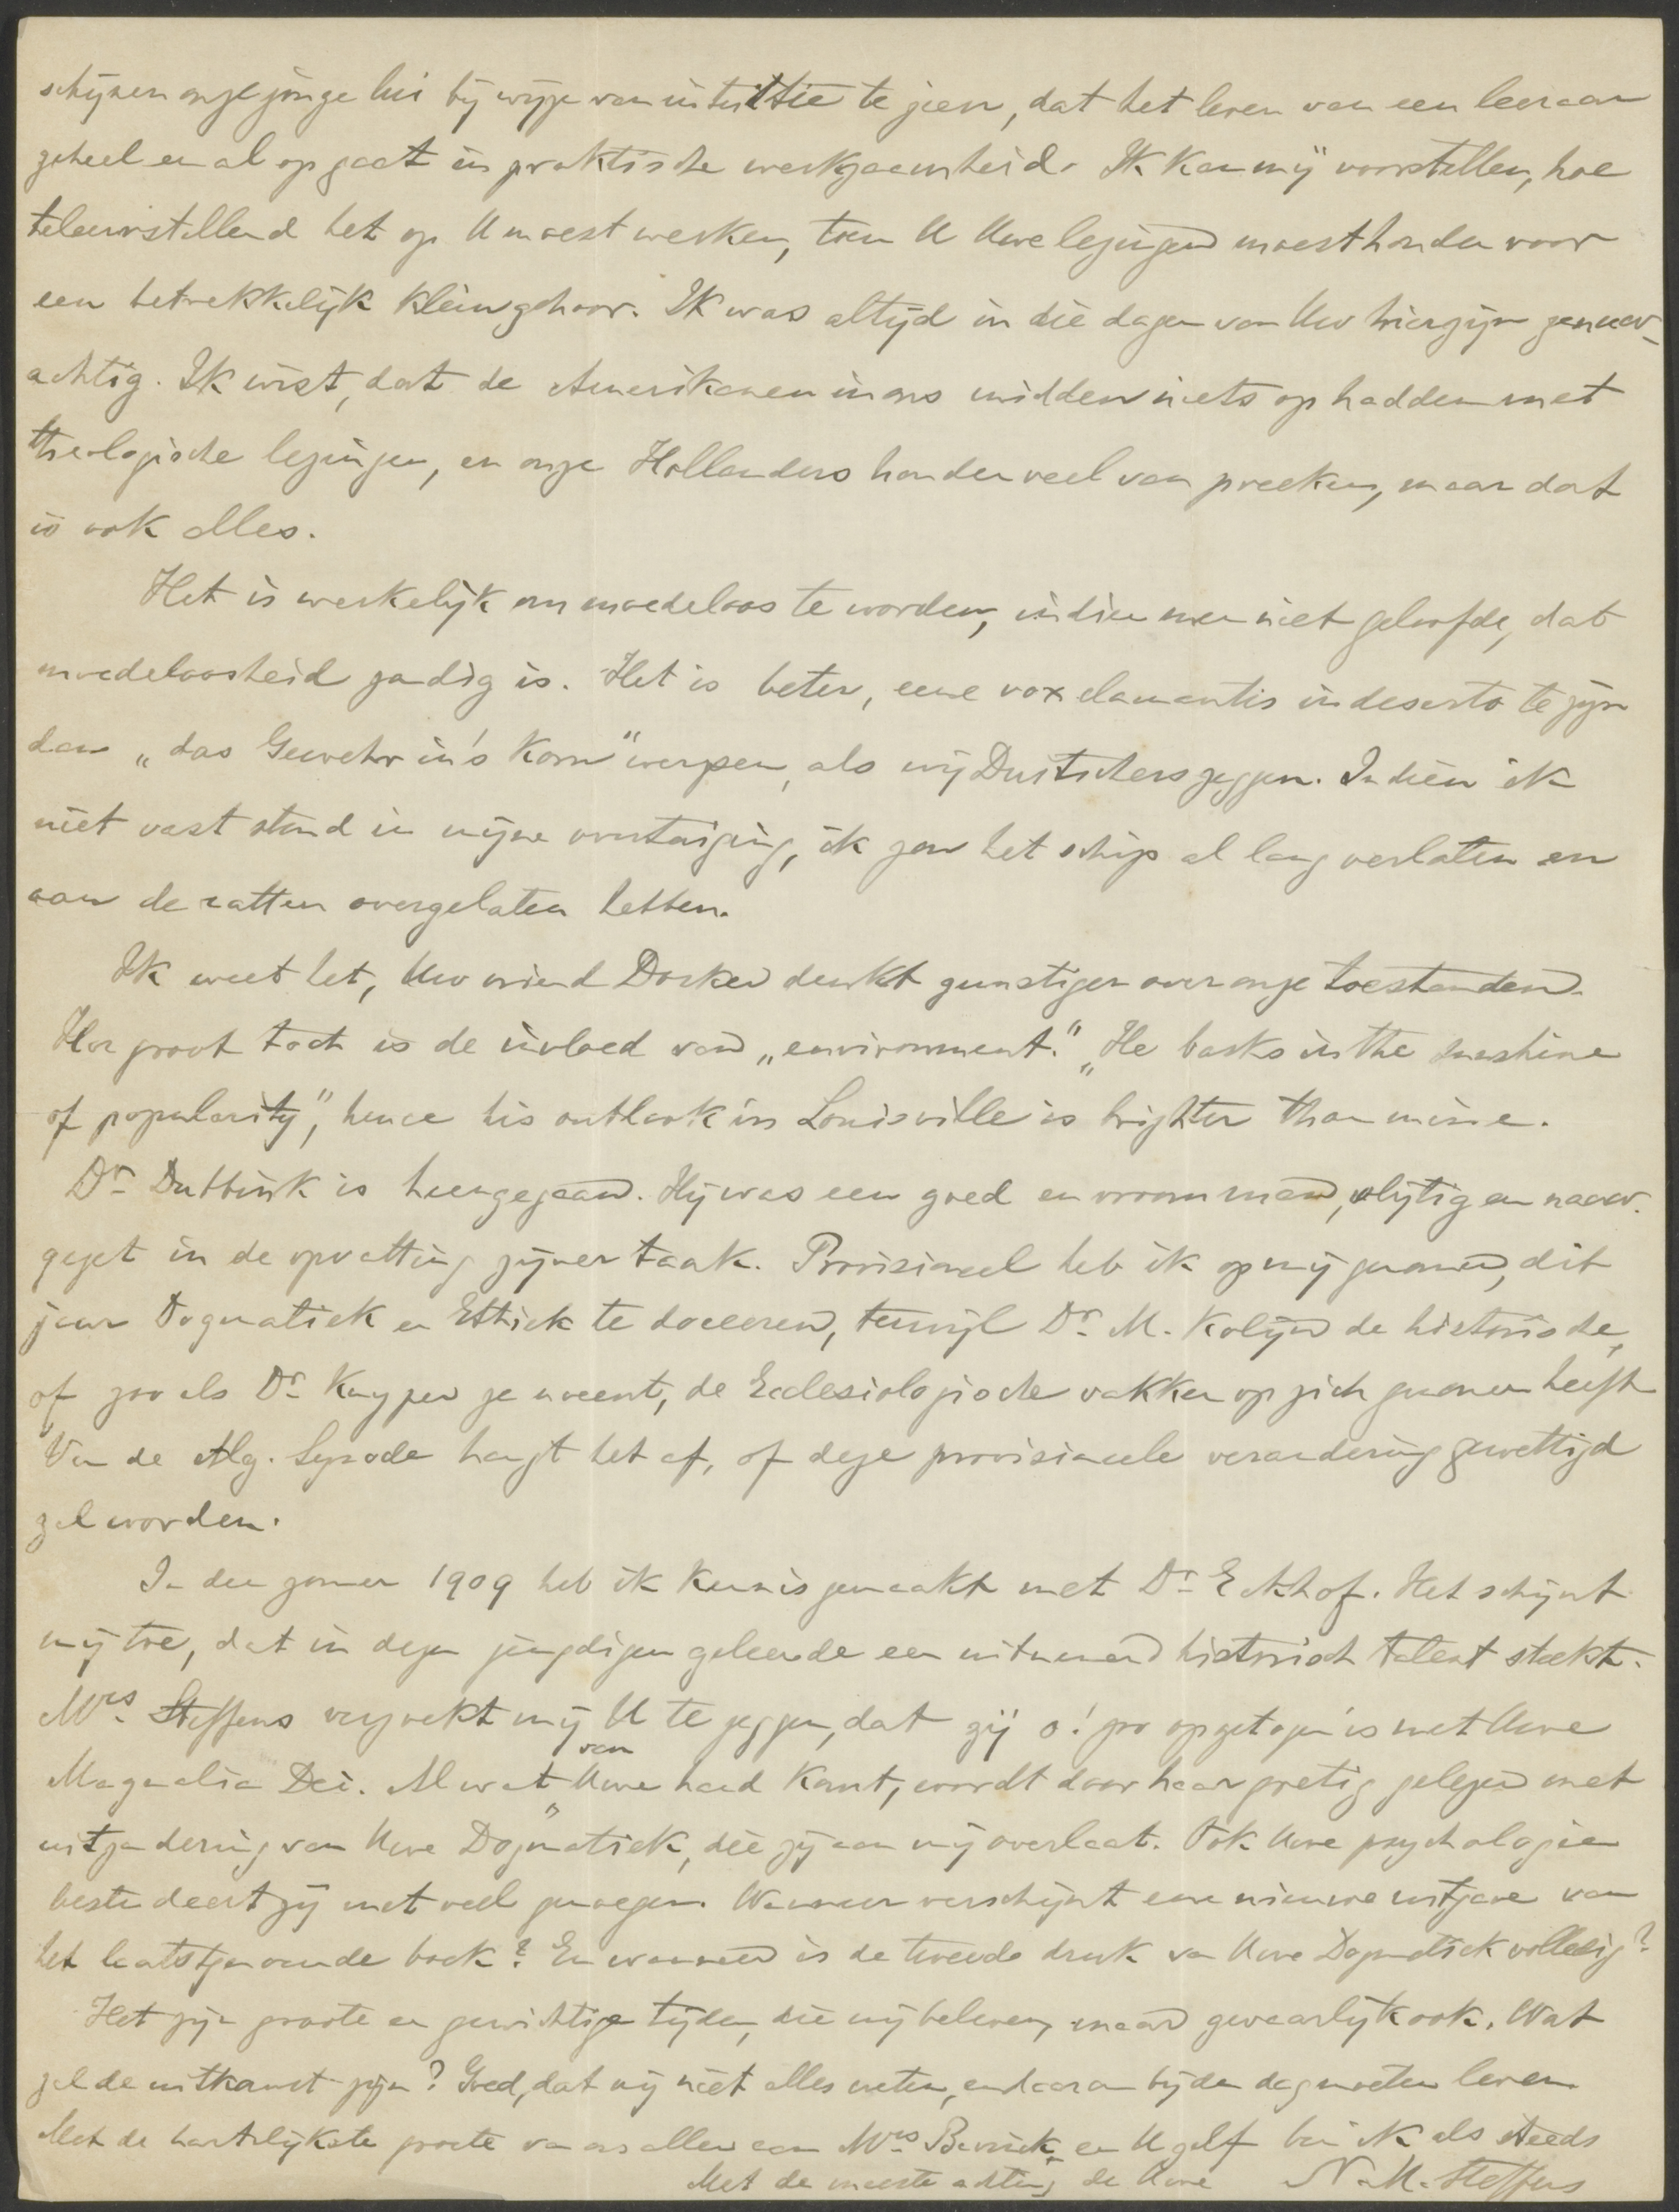 schijnen onze jonge lui bij wijze van intuïtie te zien, dat het leven van een leeraar
geheel en al op gaat in praktische werkzaamheid. Ik kan mij voorstellen, hoe
teleurstellend het op U moest werken, toen U Uwe lezingen moest houden voor
een betrekkelijk klein gehoor. Ik was altijd in die dagen van Uw hierzijn zenuw-
achtig. Ik wist, dat de Amerikanen in ons midden niets op hadden met
theologische lezingen, en onze Hollanders houden veel van preeken, maar dat
is ook alles.
Het is werkelijk om moedeloos te worden, indien men niet geloofde, dat
moedeloosheid zondig is. Het is beter, eene vox clamantis in deserto te zijn
dan „das Gewehr in's Korn" werpen, als wij Duitschers zeggen. Indien ik
niet vast stond in mijne overtuiging, ik zou het schip al lang verlaten en
aan de ratten overgelaten hebben.
Ik weet het, Uw vriend Dosker denkt gunstiger over onze toestanden.
Hoe groot toch is de invloed van „environment." „He basks in the sunshine
of popularity", hence his outlook in Louisville is brighter than mine.
Dr. Dubbink is heengegaan. Hij was een goed en vroom man, vlijtig en nauw-
gezet in de opvatting zijner taak. Provisioneel heb ik op mij genomen, dit
jaar Dogmatiek en Ethiek te doceeren, terwijl Dr. M. Kolijn de historische,
of zoo als Dr. Kuyper ze noemt, de Ecclesiologische vakken op zich genomen heeft.
Van de Alg. Synode hangt het af, of deze provisioneele verandering gewettigd
zal worden.
In den zomer 1909 heb ik kennis gemaakt met Dr. Eekhof. Het schijnt
mij toe, dat in dezen jeugdigen geleerde een uitnemend historisch talent steekt.
Mrs. Steffens verzoekt mij U te zeggen, dat zij o! zoo opgetogen is met Uwe
Magnalia Dei. Al wat van Uwe hand komt, wordt door haar gretig gelezen met
uitzondering van Uwe Dogmatiek, die zij aan mij overlaat. Ook Uwe psychologie
bestudeert zij met veel genoegen. Wanneer verschijnt eene nieuwe uitgave van
het laatstgenoemde boek? En wanneer is de tweede druk van Uwe Dogmatiek volledig?
Het zijn groote en gewichtige tijden, die wij beleven, maar gevaarlijk ook. Wat
zal de uitkomst zijn? Goed, dat wij niet alles weten, en daarom bij den dag moeten leven.
Met de hartelijkste groete van ons allen aan Mrs. Bavinck en U zelf ben ik als steeds
Met de meeste achting de Uwe N. M. Steffens